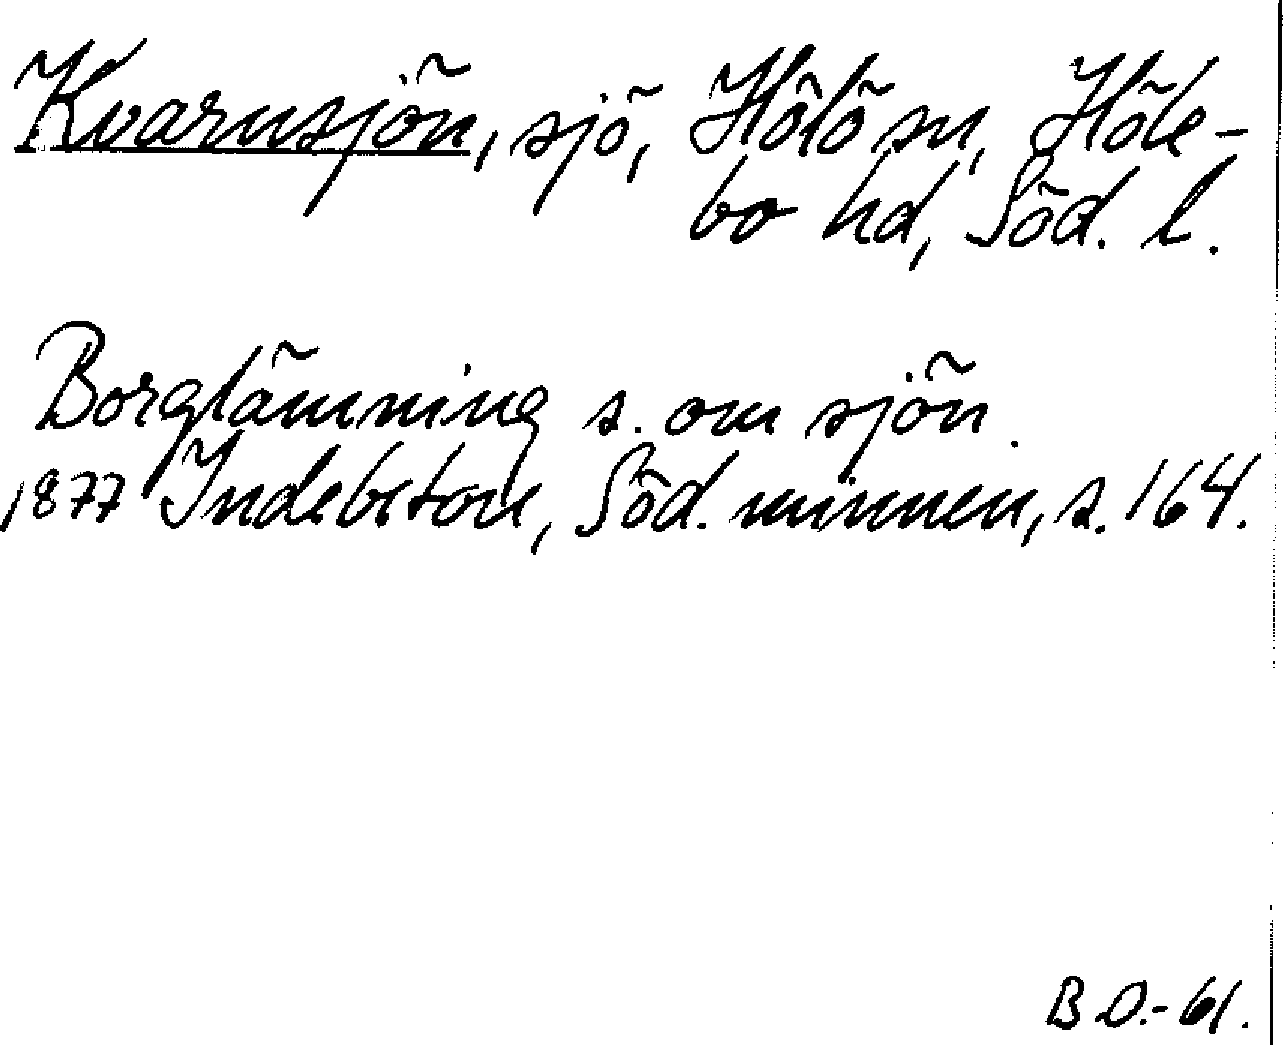 Kvarnsjön, sjö, Hölö sn, Höle-
bo hd, Söd. l.
Borglämning s. om sjön.
1877 Indebetou, Söd. minnen, s. 164.
B O.- 61.